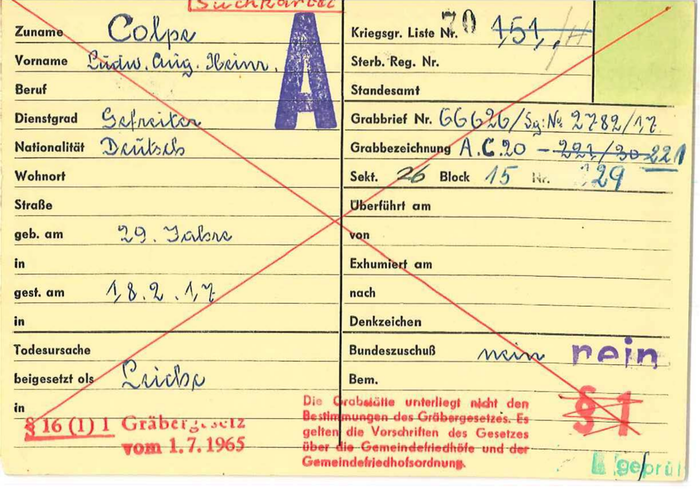 Suchkartei
Zuname Colpe
Vorname Ludw. Aug. Heinr.
Beruf
Dienstgrad Gefreiter
Nationalität Deutsch
Wohnort
Straße
geb. am 29. Jahre
in
gest. am 18.2.17
in
Todesursache
beigesetzt als Leiche
in
§ 16 (1) 1 Gräbergesetz
vom 1.7.1965
A
Kriegsgr. Liste Nr. 70 151,
Sterb. Reg. Nr.
Standesamt
Grabbrief Nr. 66626/Sg: Nr 2782/17
Grabbezeichnung A.C.20 - 221/30 221
Sekt. 26 Block 15 Nr. 29
Überführt am
von
Exhumiert am
nach
Denkzeichen
Bundeszuschuß nein nein
Bem.
Die Grabstätte unterliegt nicht den
Bestimmungen des Gräbergesetzes. Es
gelten die Vorschriften des Gesetzes
über die Gemeindefriedhöfe und der
Gemeindefriedhofsordnung.
§ 1
geprüf